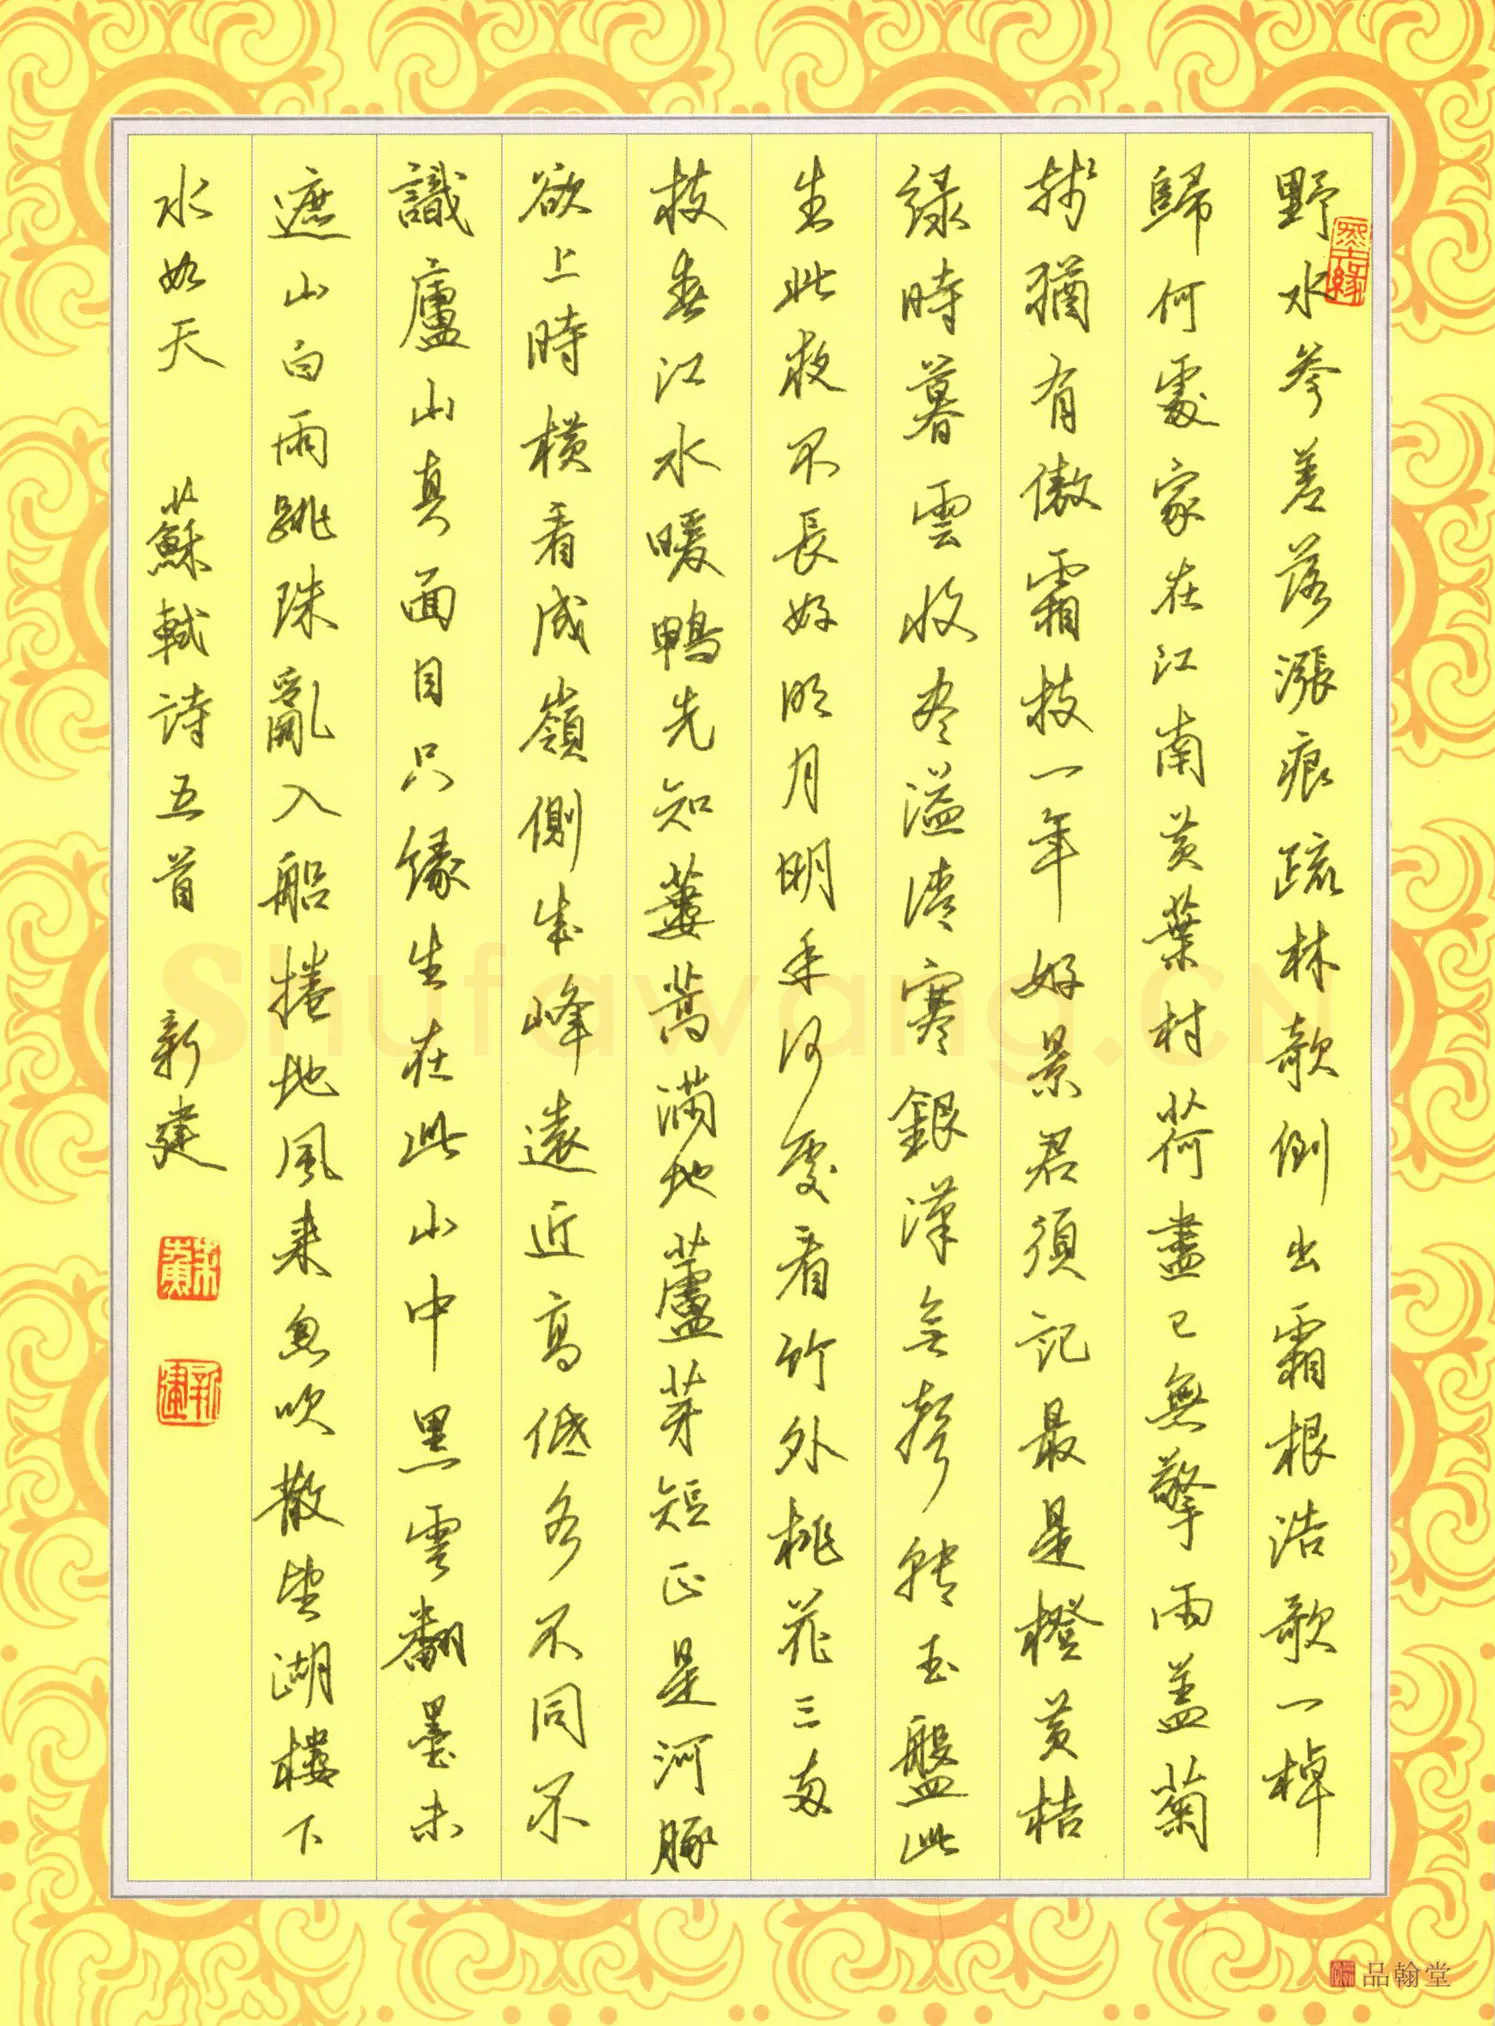 野水參差落漲痕疏林欹倒出霜根浩歌一棹
歸何處家在江南黃葉村荷盡已無擎雨蓋菊
殘猶有傲霜枝一年好景君須記最是橙黃桔
綠時暮雲收盡溢清寒銀漢無聲轉玉盤此
生此夜不長好明月明年何處看竹外桃花三兩
枝春江水暖鴨先知蔞蒿滿地蘆芽短正是河豚
欲上時橫看成嶺側成峰遠近高低各不同不
識廬山真面目只緣生在此山中黑雲翻墨未
遮山白雨跳珠亂入船捲地風來忽吹散望湖樓下
水如天 蘇軾詩五首 新建
新建
Shufawang.CN
品翰堂